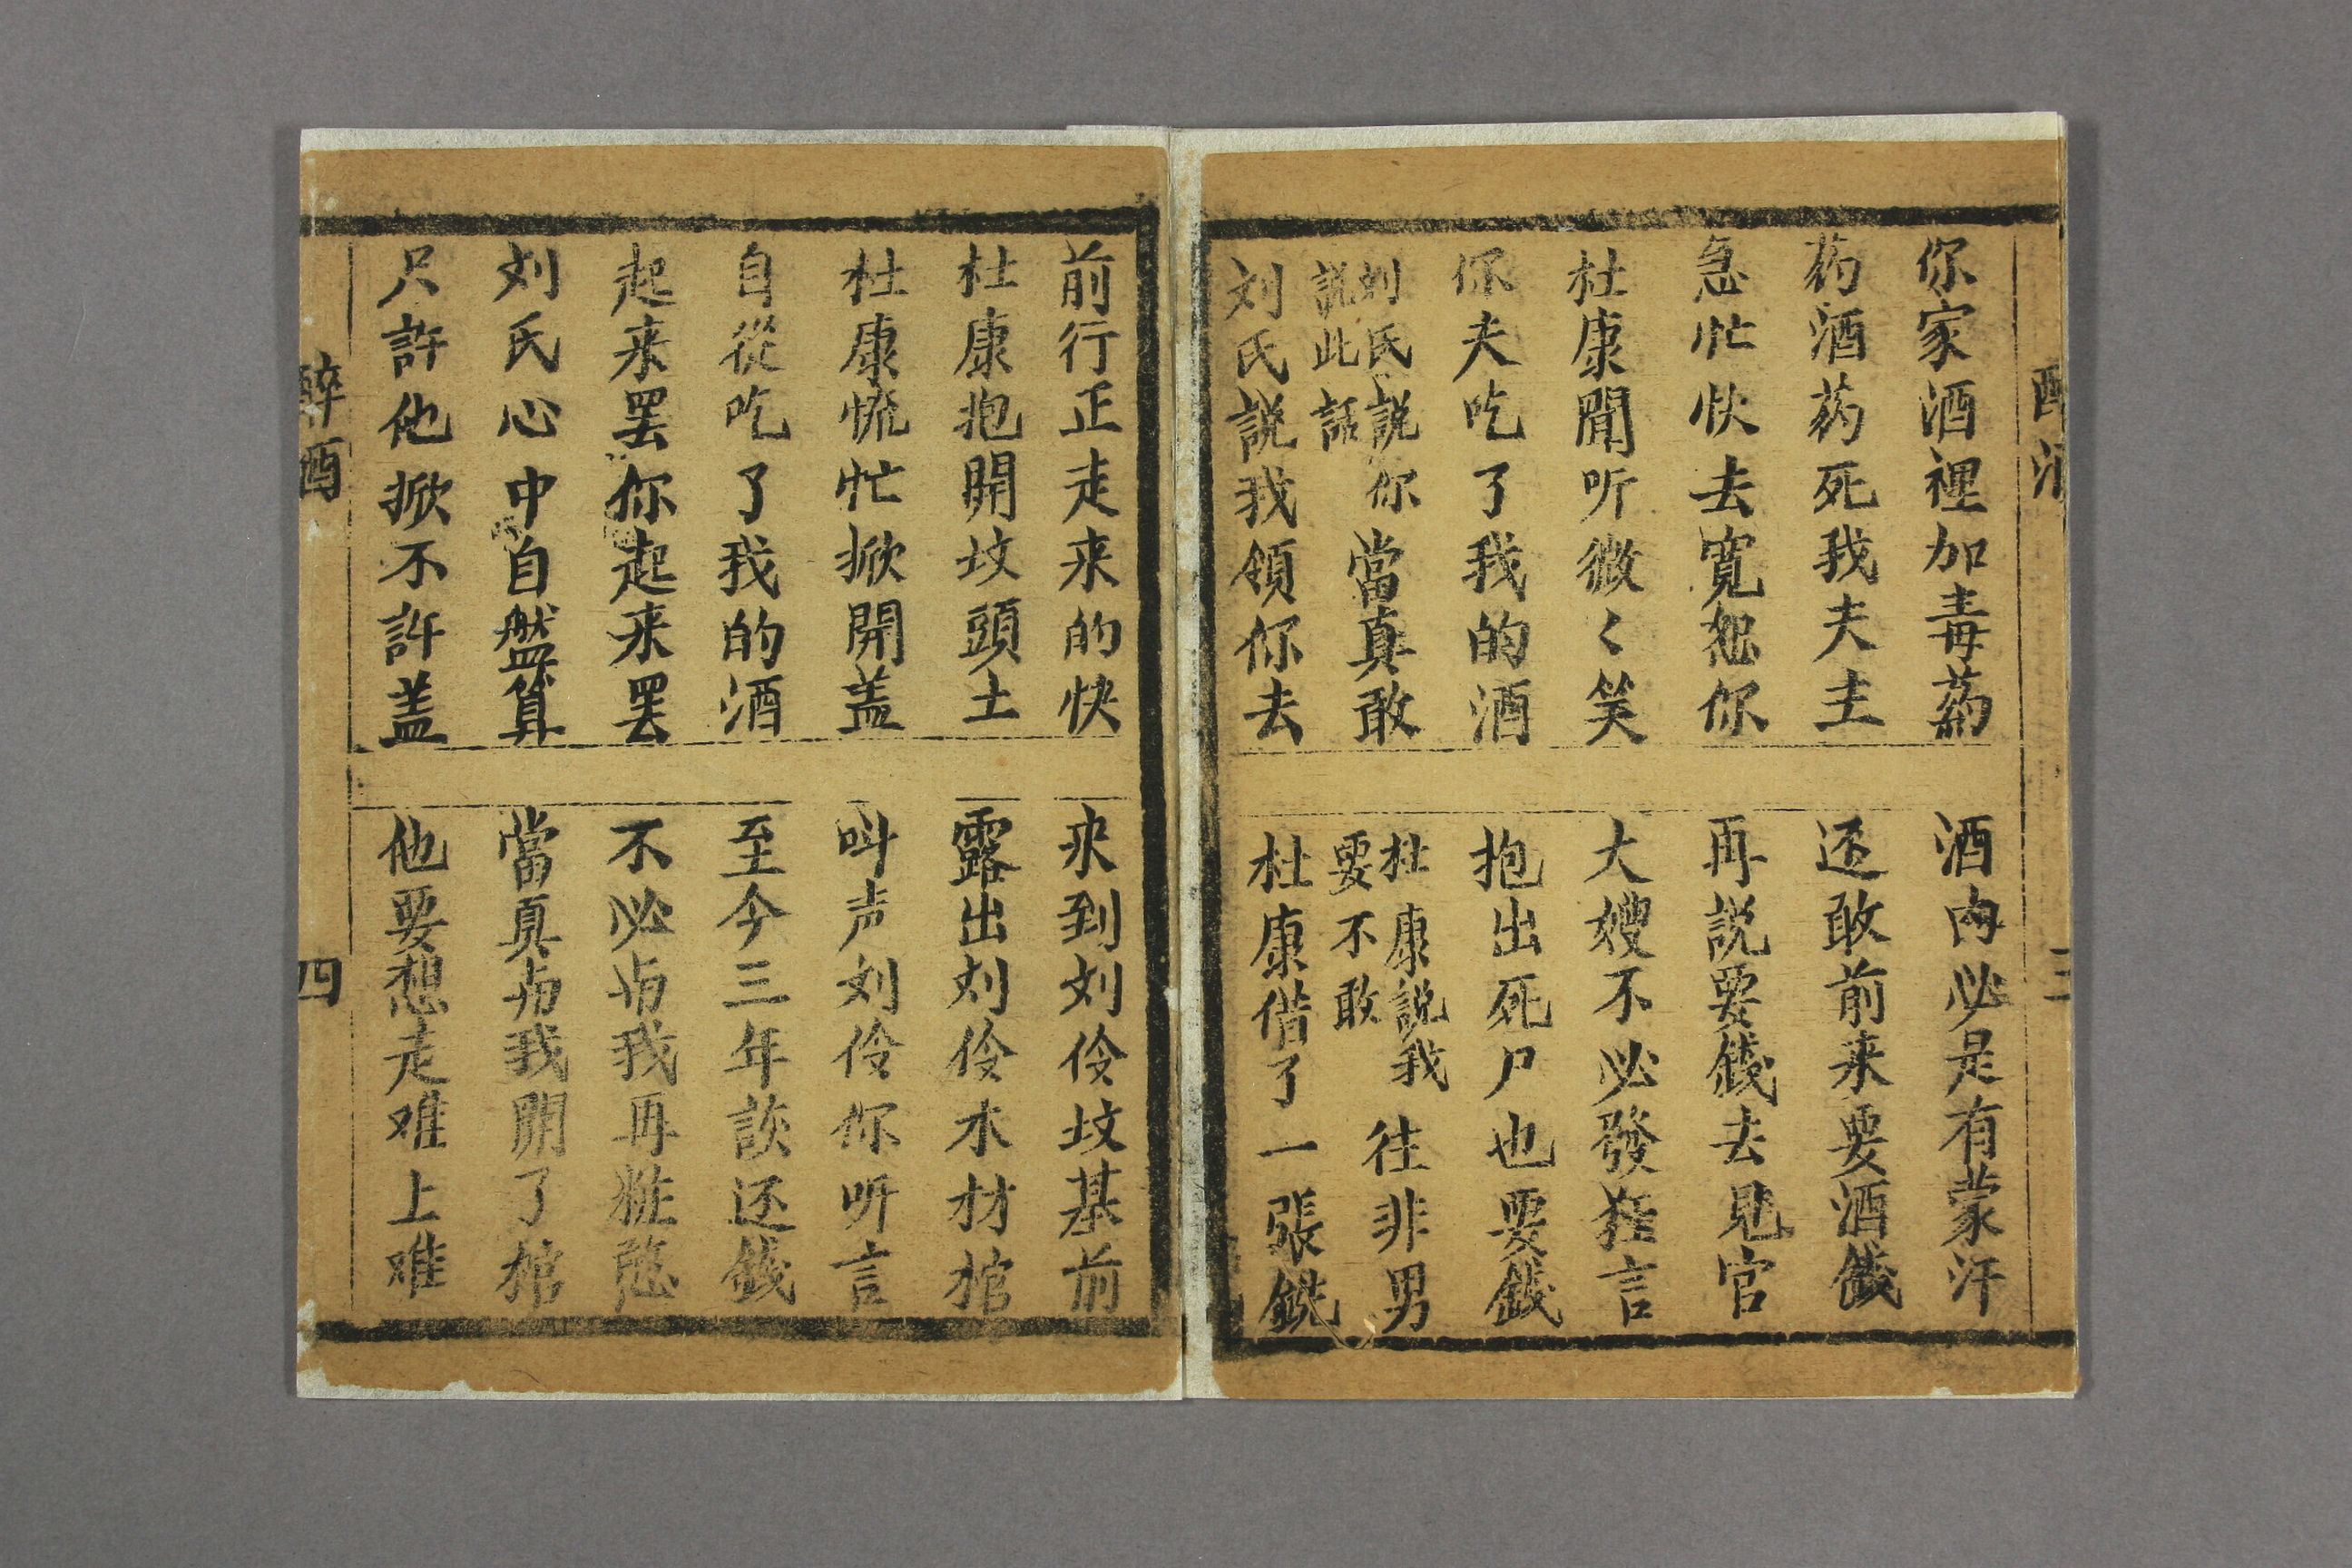 你家酒裡加毒药
酒内必是有蒙汗
药酒药死我夫主
还敢前来要酒錢
急忙快去寬恕你
再説要錢去見官
杜康聞听微〻笑
大嫂不必發狂言
你夫吃了我的酒
抱出死尸也要錢
刘氏説你
説此話
當真敢
杜康説我
要不敢
往非男
刘氏説我領你去
杜康借了一張鍬
前行正走来的快
来到刘伶坟基前
杜康抱開坟頭土
露出刘伶木材棺
杜康慌忙掀開盖
叫声刘伶你听言
自從吃了我的酒
至今三年該还錢
起来罢你起来罢
不必与我再粧憨
刘氏心中自盤算
當真与我開了棺
只許他掀不許盖
他要想走难上难
醉酒
四